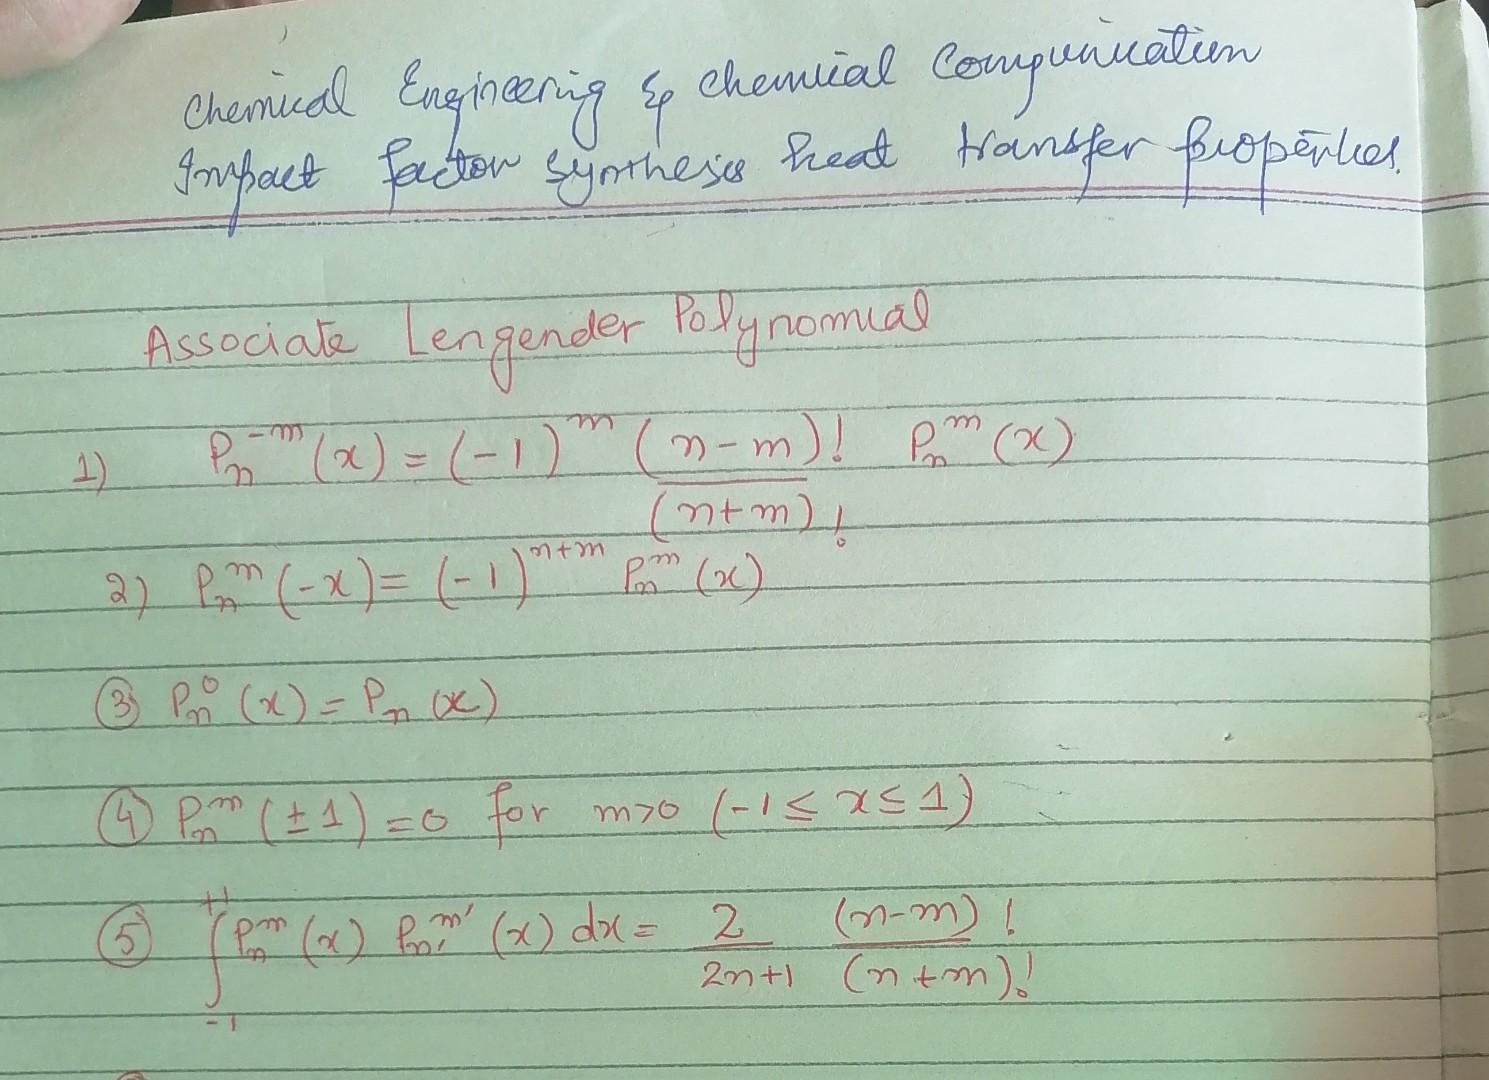 Chemical Engineering & Chemical Communication
Impact factor synthesis heat transfer properties.
Associate Lengender Polynomial
1) Pₙ⁻ᵐ(x) = (-1)ᵐ (n-m)!/(n+m)! Pₙᵐ(x)
2) Pₙᵐ(-x) = (-1)ⁿ⁺ᵐ Pₙᵐ(x)
③ Pₙ⁰(x) = Pₙ(x)
④ Pₙᵐ(±1) = 0 for m>0 (-1 ≤ x ≤ 1)
⑤ ∫₋₁⁺¹ Pₙᵐ(x) Pₙ′ᵐ′(x) dx = 2/2n+1 (n-m)!/(n+m)!